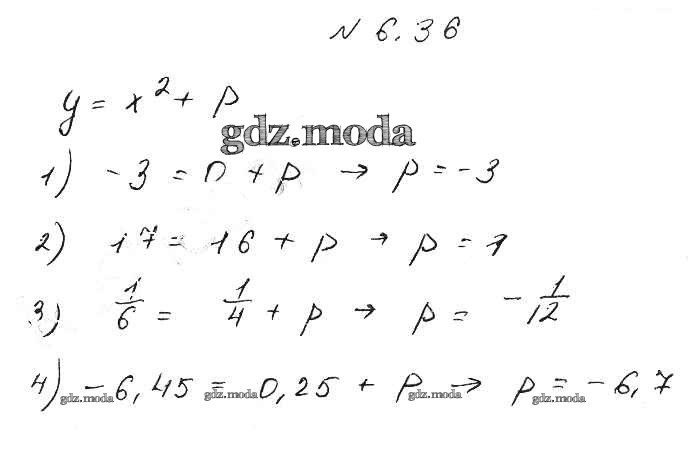 № 6.36
y = x² + p
gdz.moda
1) -3 = 0 + p → p = -3
2) 17 = 16 + p → p = 1
3) 1/6 = 1/4 + p → p = -1/12
4) -6,45 = 0,25 + p → p = -6,7
gdz.moda gdz.moda gdz.moda gdz.moda